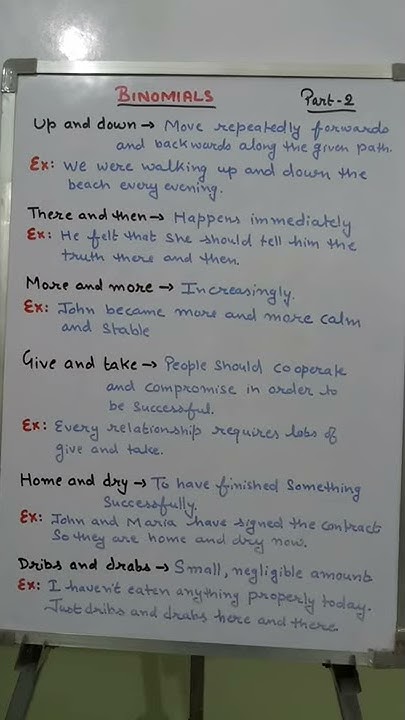 BINOMIALS
Part-2
Up and down → Move repeatedly forwards
and backwards along the given path.
Ex: We were walking up and down the
beach every evening.
There and then → Happens immediately
Ex: He felt that she should tell him the
truth there and then.
More and more → Increasingly.
Ex: John became more and more calm
and stable
Give and take → People should cooperate
and compromise in order to
be successful.
Ex: Every relationship requires lots of
give and take.
Home and dry → To have finished something
successfully.
Ex: John and Maria have signed the contract
So they are home and dry now.
Dribs and drabs → Small, negligible amounts
Ex: I haven't eaten anything properly today.
Just dribs and drabs here and there